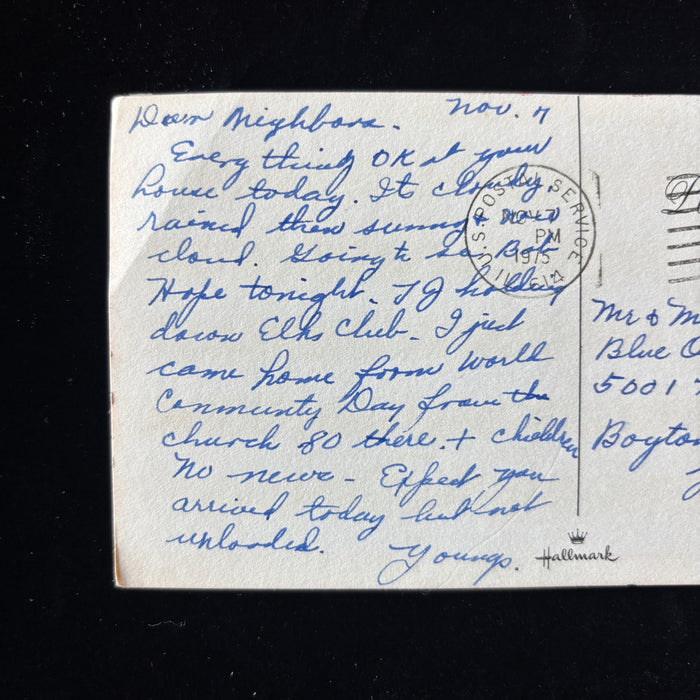 Nov. 7
Dear Neighbors.
Every thing OK at your
house today. Its cloudy,
rained then sunny + now
cloud. Going to see Bob
Hope tonight. TJ holding
down Elks Club. I just
came home from World
Community Day from the
church 80 there. + children
No news - Expect you
arrived today but not
unloaded. Youngs.
U.S. POSTAL SERVICE
NOV 7
PM
1975
IL 614
Mr & M
Blue O
5001
Boyton
Hallmark